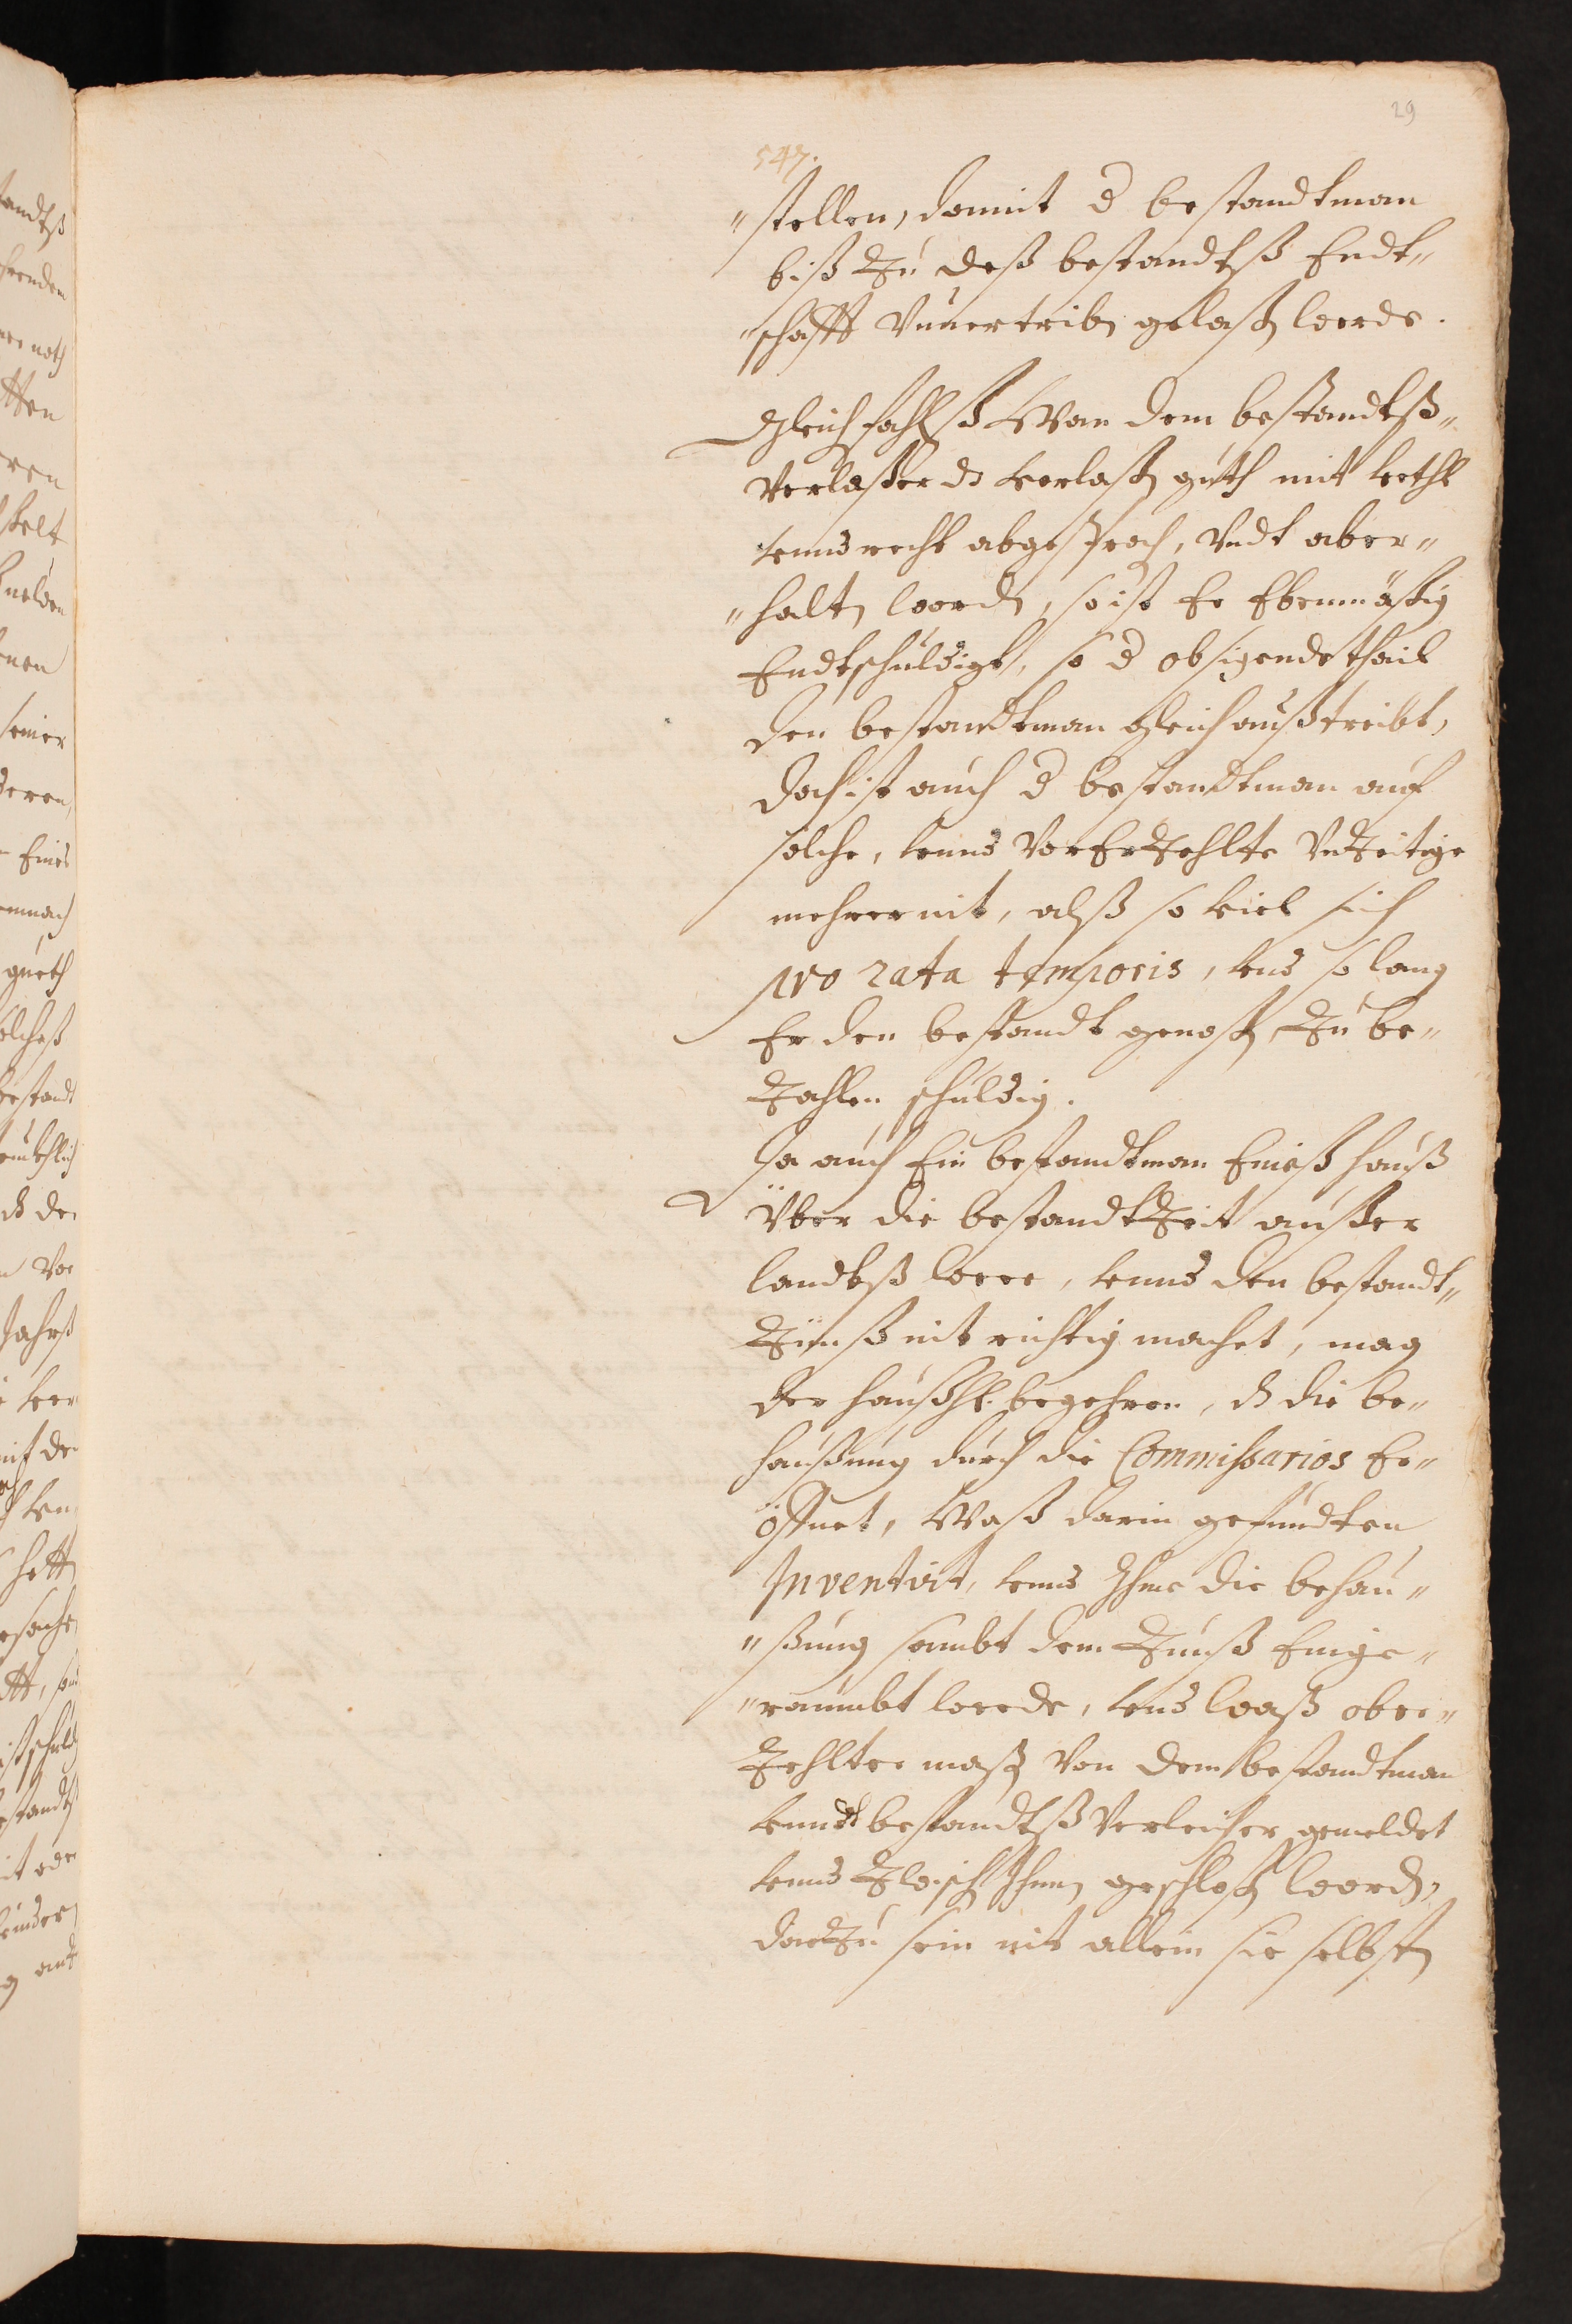 29
547.
"stellen, damit d bestandtman
biß Zu deß bestandtß Endt„
"schafft Vnuertribn gelaßn werde.
Gleichfahlß Wan dem bestandtß„
Verlaßer dz verlaßn guth mit
vnnd recht abgesproch, Vndt aber„
"haltn word, so ist Er Ebenmäßig
Endtschuldigt, so d obsigende thail
den bestandtman gleich außtreibt,
doch ist auch d bestandtman auf
solche, vnnd Vor ErZehlte VnZeitige
mehrer nit, alß so viel sich
pro rata temporis, vnd so lang
Er den bestandt genoßn Zu be„
Zahlen schuldig.
Ja auch Ein bestandtman Eineß hauß
Vber die bestandtZeit außer
landtß were, vnnd den bestandt„
Zinß nit richtig machet, mag
der haußh. begehren, dz die be„
haußung durch die Commissarios Er„
öffnet, Waß darin gefundten
Inventirt, vnnd Ihme die behau„
"ßung sambt dem Zinß Einge„
"raumbt werde, vnd waß ober„
Zehlter maßn Von dem bestandtman
vnndt bestandtß Verleicher gemeldet
vnnd Zwisch Ihnen geschloßn word,
darZu sein nit allein sie selbstn